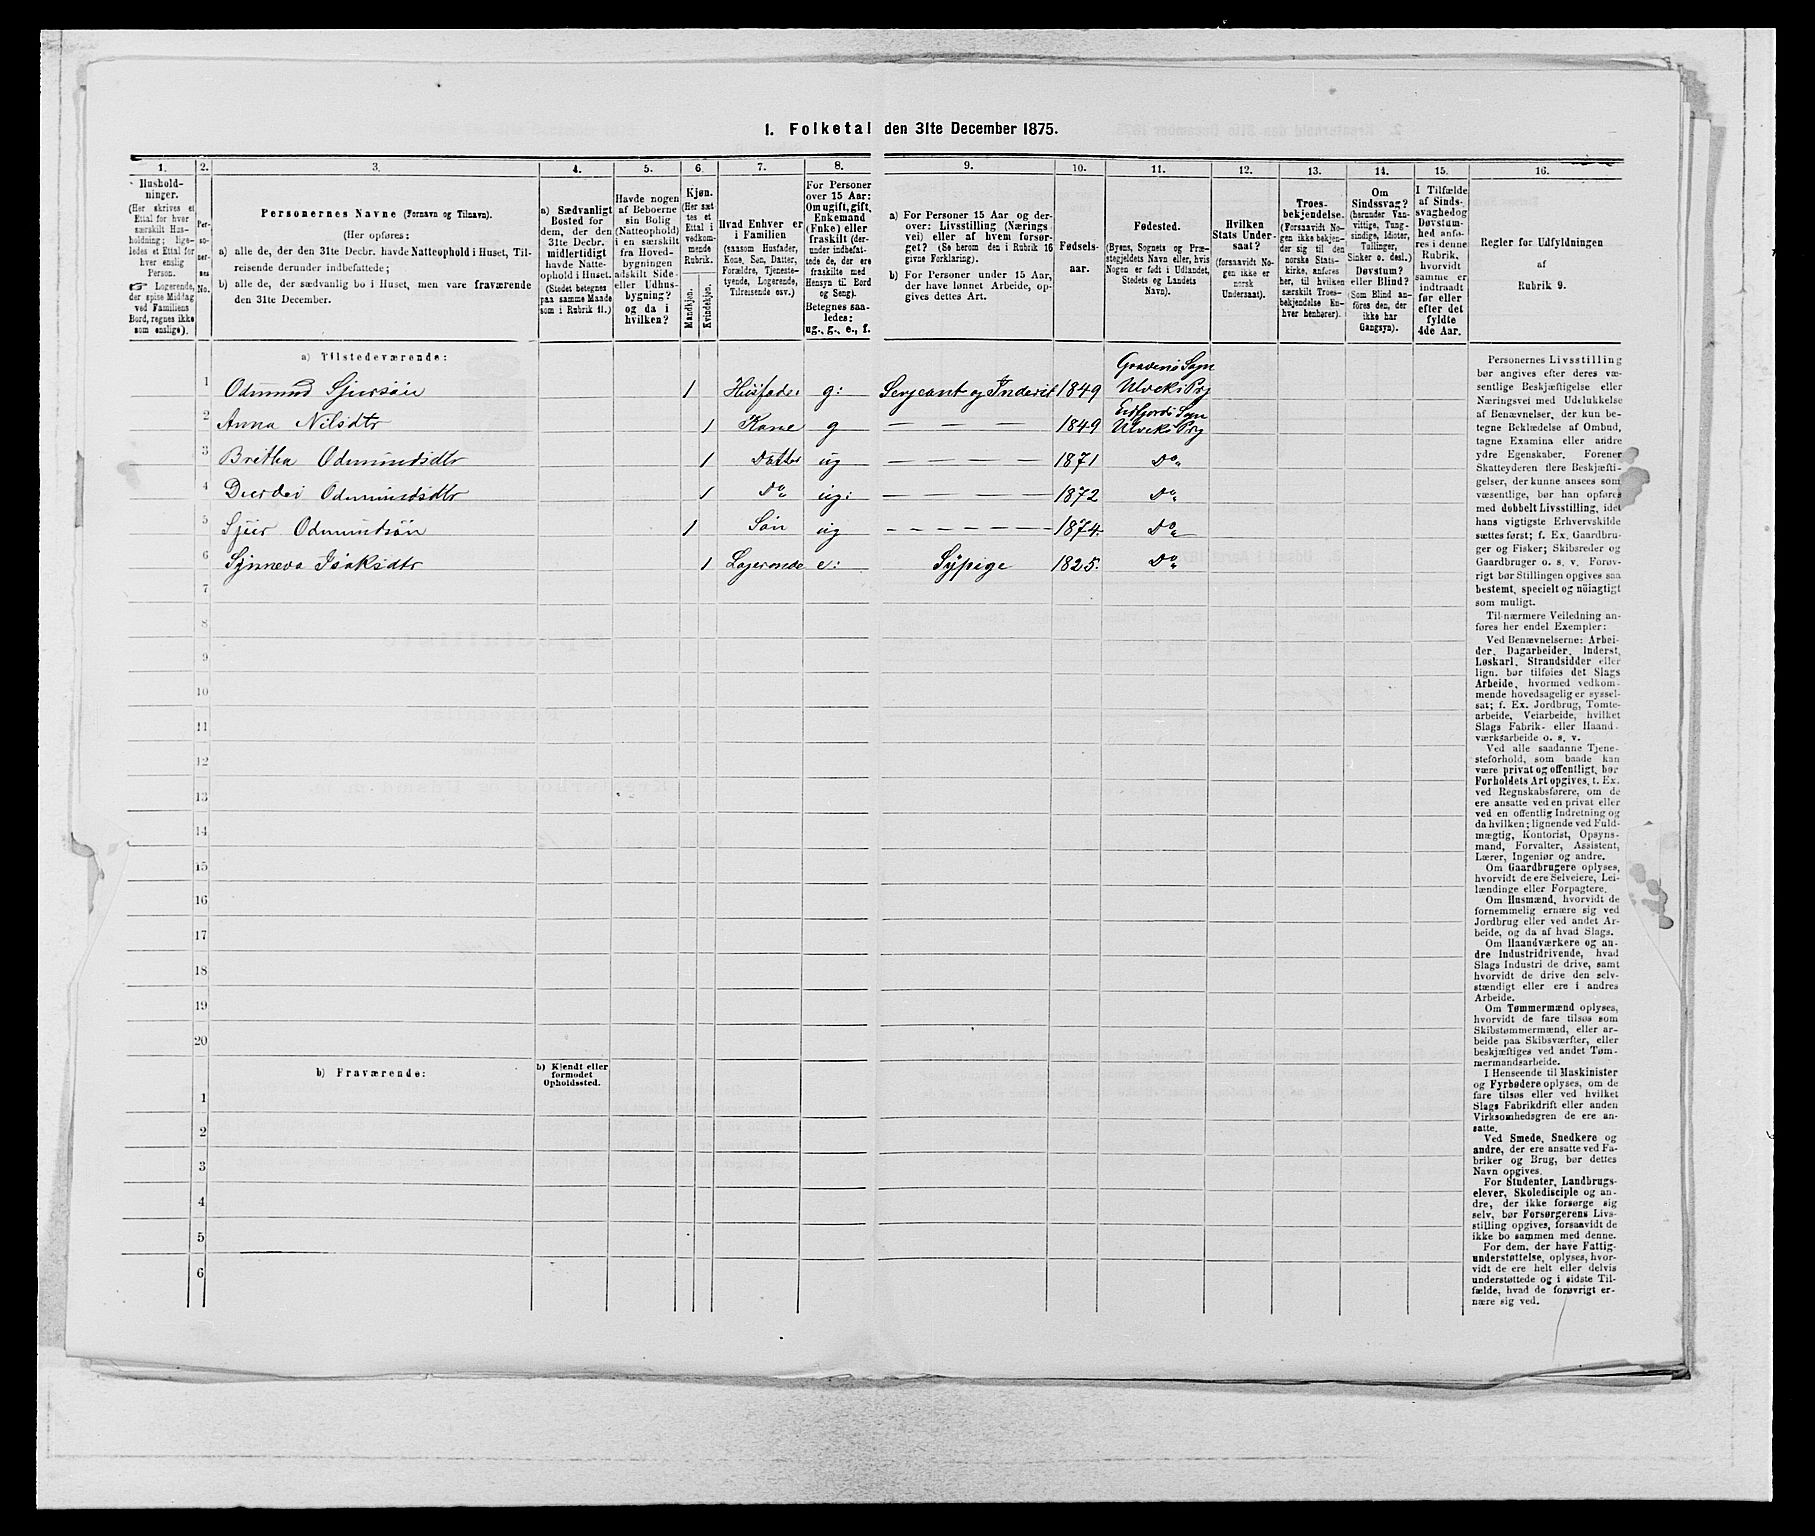 1. Folketal den 31te December 1875.
1. 2. 3. 4. 5. 6. 7. 8. 9. 10. 11. 12. 13. 14. 15. 16.
Hushold-
ninger.
(Her skrives et
Ettal for hver
særskilt Hus-
holdning; lige-
ledes et Ettal for
hver enslig
Person.
☞ Logerende,
der spise Middag
ved Familiens
Bord, regnes ikke
som enslige).
Per-
so-
ner-
nes
No.
Personernes Navne (Fornavn og Tilnavn).
(Her opføres:
a) alle de, der den 31te Decbr. havde Natteophold i Huset, Til-
reisende derunder indbefattede;
b) alle de, der sædvanlig bo i Huset, men vare fraværende
den 31te December.
a) Sædvanligt
Bosted for
dem, der den
31te Decbr.
midlertidigt
havde Natte-
ophold i Huset.
(Stedet betegnes
paa samme Maade
som i Rubrik 11.)
Havde nogen
af Beboerne
sin Bolig
(Natteophold)
i en særskilt
fra Hoved-
bygningen
adskilt Side-
eller Udhus-
bygning?
og da i
hvilken?
Kjøn.
(Her sæt
tes et
Ettal i
vedkom-
mende
Rubrik.
Mandkjøn.
Kvindekjøn.
Hvad Enhver er
i Familien
(saasom Husfader,
Kone, Søn, Datter,
Forældre, Tjeneste-
tyende, Logerende,
Tilreisende osv.)
For Personer
over 15 Aar:
Om ugift, gift,
Enkemand
(Enke) eller
fraskilt (der-
under indbefat-
tede de, der ere
fraskilte med
Hensyn til Bord
og Seng).
Betegnes saa-
ledes:
ug., g., e., f.
a) For Personer 15 Aar og der-
over: Livsstilling (Nærings-
vei) eller af hvem forsør-
get? (Se herom den i Rubrik 16
givne Forklaring).
b) For Personer under 15 Aar,
der have lønnet Arbeide, op-
gives dettes Art.
Fødsels-
aar.
Fødested.
(Byens, Sognets og Præ-
stegjeldets Navn eller, hvis
Nogen er født i Udlandet,
Stedets og Landets
Navn).
Hvilken
Stats Under-
saat?
(forsaavidt No-
gen ikke er
norsk
Undersaat).
Troes-
bekjendelse.
(Forsaavidt No-
gen ikke bekjen-
der sig til den
norske Stats-
kirke, anføres
her, til hvilken
særskilt Troes-
bekjendelse En-
hver henhører).
Om
Sindssvag?
(herunder Van-
vittige, Tung-
sindige, Idioter,
Tullinger,
Sinker o. desl.)
Døvstum?
eller Blind?
(Som Blind an-
føres den, der
ikke har
Gangsyn).
I Tilfælde
af Sinds-
svaghed og
Døvstum-
hed anfø-
res i denne
Rubrik,
hvorvidt
samme er
indtraadt
før eller
efter det
fyldte
4de Aar.
Regler for Udfyldningen
af
Rubrik 9.
a) Tilstedeværende:
1 Odmund Sjursøn 1 Husfader g: Serjeant og Inderst 1849 Gravens Sogn Ulviks Prg
2 Anna Nilsdtr 1 Kone g — — — — 1849 Eidfjords Sogn Ulviks Prg
3 Britha Odmundsdtr 1 Datter ug — — — — 1871 Do
4 Durdei Odmundsdtr 1 Do ug: — — — — 1872 Do
5 Sjur Odmundsøn 1 Søn ug — — — — 1874. Do
6 Synneva Isaksdtr 1 Logerende e: Sypige 1825. Do
7
8
9
10
11
12
13
14
15
16
17
18
19
20
b) Fraværende:
b) Kjendt eller
formodet
Opholdssted.
1
2
3
4
5
6
Personernes Livsstilling
bør angives efter deres væ-
sentlige Beskjæftigelse eller
Næringsvei med Udelukkelse
af Benævnelser, der kun be-
tegne Beklædelse af Ombud,
tagne Examina eller andre
ydre Egenskaber. Forener
Skatteyderen flere Beskjæfti-
gelser, der kunne ansees som
væsentlige, bør han opføres
med dobbelt Livsstilling, idet
hans vigtigste Erhvervskilde
sættes først; f. Ex. Gaardbru-
ger og Fisker; Skibsreder og
Gaardbruger o. s. v. Forøv-
rigt bør Stillingen opgives saa
bestemt, specielt og nöiagtigt
som muligt.
Til nærmere Veiledning an-
føres her endel Exempler:
Ved Benævnelserne: Arbei-
der, Dagarbeider, Inderst,
Løskarl, Strandsidder eller
lign. bør tilføies det Slags
Arbeide, hvormed vedkom-
mende hovedsagelig er syssel-
sat; f. Ex. Jordbrug, Tomte-
arbeide, Veiarbeide, hvilket
Slags Fabrik- eller Haand-
værksarbeide o. s. v.
Ved alle saadanne Tjene-
steforhold, som baade kan
være privat og offentligt, bør
Forholdets Art opgives, t. Ex.
ved Regnskabsførere, om de
ere ansatte ved en privat eller
ved en offentlig Indretning og
da hvilken; lignende ved Fuld-
mægtig, Kontorist, Opsyns-
mand, Forvalter, Assistent,
Lærer, Ingeniør og andre.
Om Gaardbrugere oplyses,
hvorvidt de ere Selveiere, Lei-
lændinge eller Forpagtere.
Om Husmænd, hvorvidt de
fornemmelig ernære sig ved
Jordbrug eller ved andet Ar-
beide, og da af hvad Slags.
Om Haandværkere og an-
dre Industridrivende, hvad
Slags Industri de drive, samt
hvorvidt de drive den selv-
stændigt eller ere i andres
Arbeide.
Om Tømmermænd oplyses,
hvorvidt de fare tilsøs som
Skibstømmermænd, eller ar-
beide paa Skibsværfter, eller
beskjæftiges ved andet Tøm-
mermandsarbeide.
I Henseende til Maskinister
og Fyrbødere oplyses, om de
fare tilsøs eller ved hvilket
Slags Fabrikdrift eller anden
Virksomhedsgren de ere an-
satte.
Ved Smede, Snedkere og
andre, der ere ansatte ved Fa-
briker og Brug, bør dettes
Navn opgives.
For Studenter, Landbrugs-
elever, Skoledisciple og an-
dre, der ikke forsørge sig
selv, bør Forsørgerens Livs-
stilling opgives, forsaavidt de
ikke bo sammen med denne.
For dem, der have Fattig-
understøttelse, oplyses, hvor-
vidt de ere helt eller delvis
understøttede og i sidste Til-
fælde, hvad de forøvrigt er-
nære sig ved.